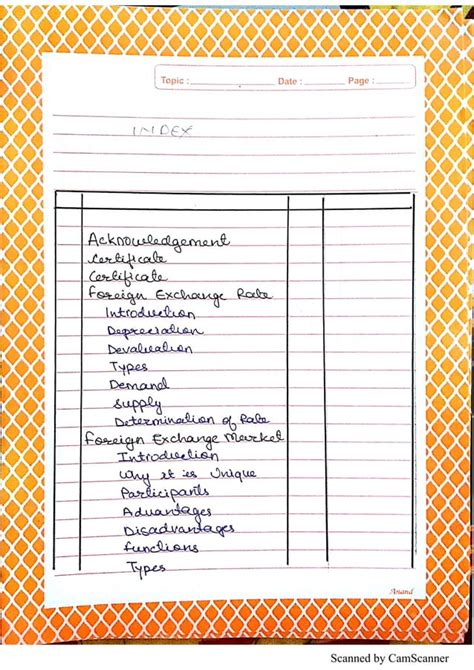 Topic : Date : Page :
INDEX
Acknowledgement
Certificate
Certificate
Foreign Exchange Rate
Introduction
Depreciation
Devaluation
Types
Demand
Supply
Determination of Rate
Foreign Exchange Market
Introduction
Why it is Unique
Participants
Advantages
Disadvantages
Functions
Types
Anand
Scanned by CamScanner